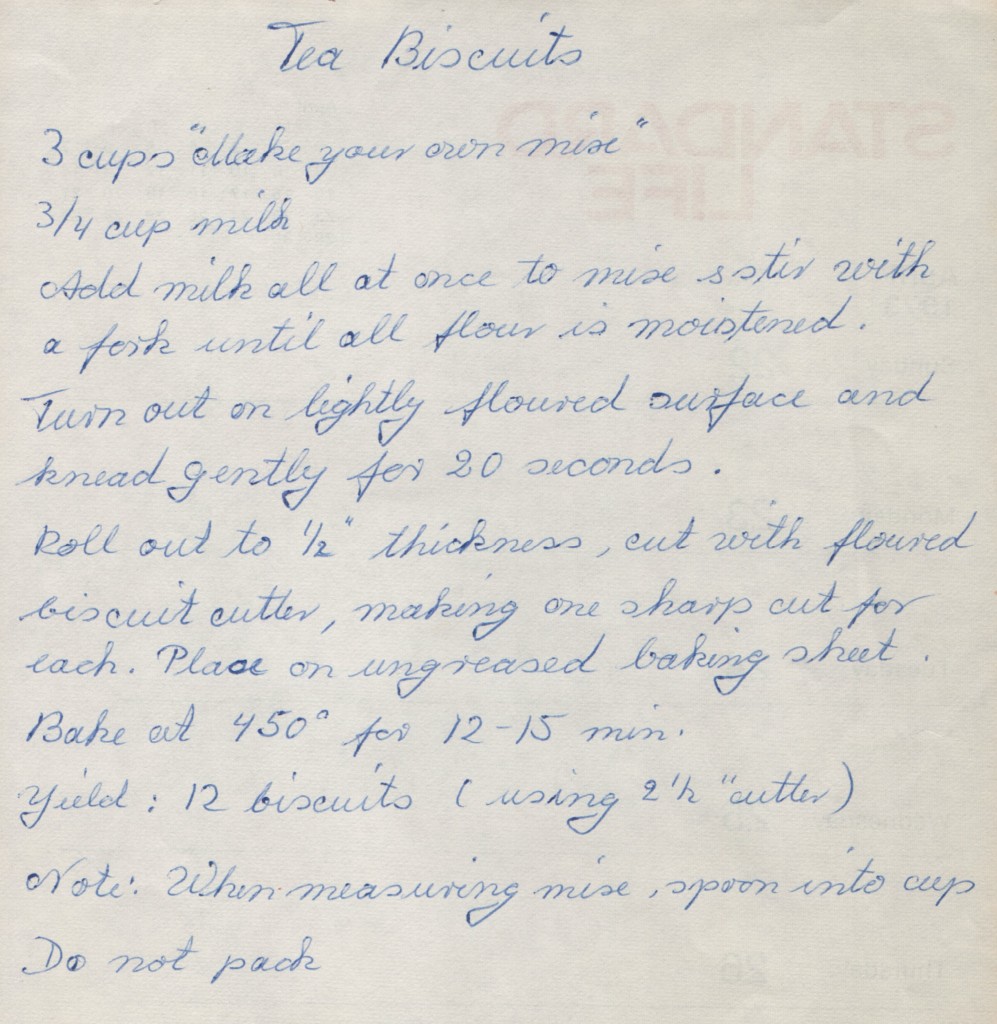 Tea Biscuits
3 cups "Make your own mix"
3/4 cup milk
Add milk all at once to mix & stir with
a fork until all flour is moistened.
Turn out on lightly floured surface and
knead gently for 20 seconds.
Roll out to 1/2" thickness, cut with floured
biscuit cutter, making one sharp cut for
each. Place on ungreased baking sheet.
Bake at 450° for 12-15 min.
Yield: 12 biscuits (using 2 1/2" cutter)
Note: When measuring mix, spoon into cup
Do not pack
STANDARD
LIFE